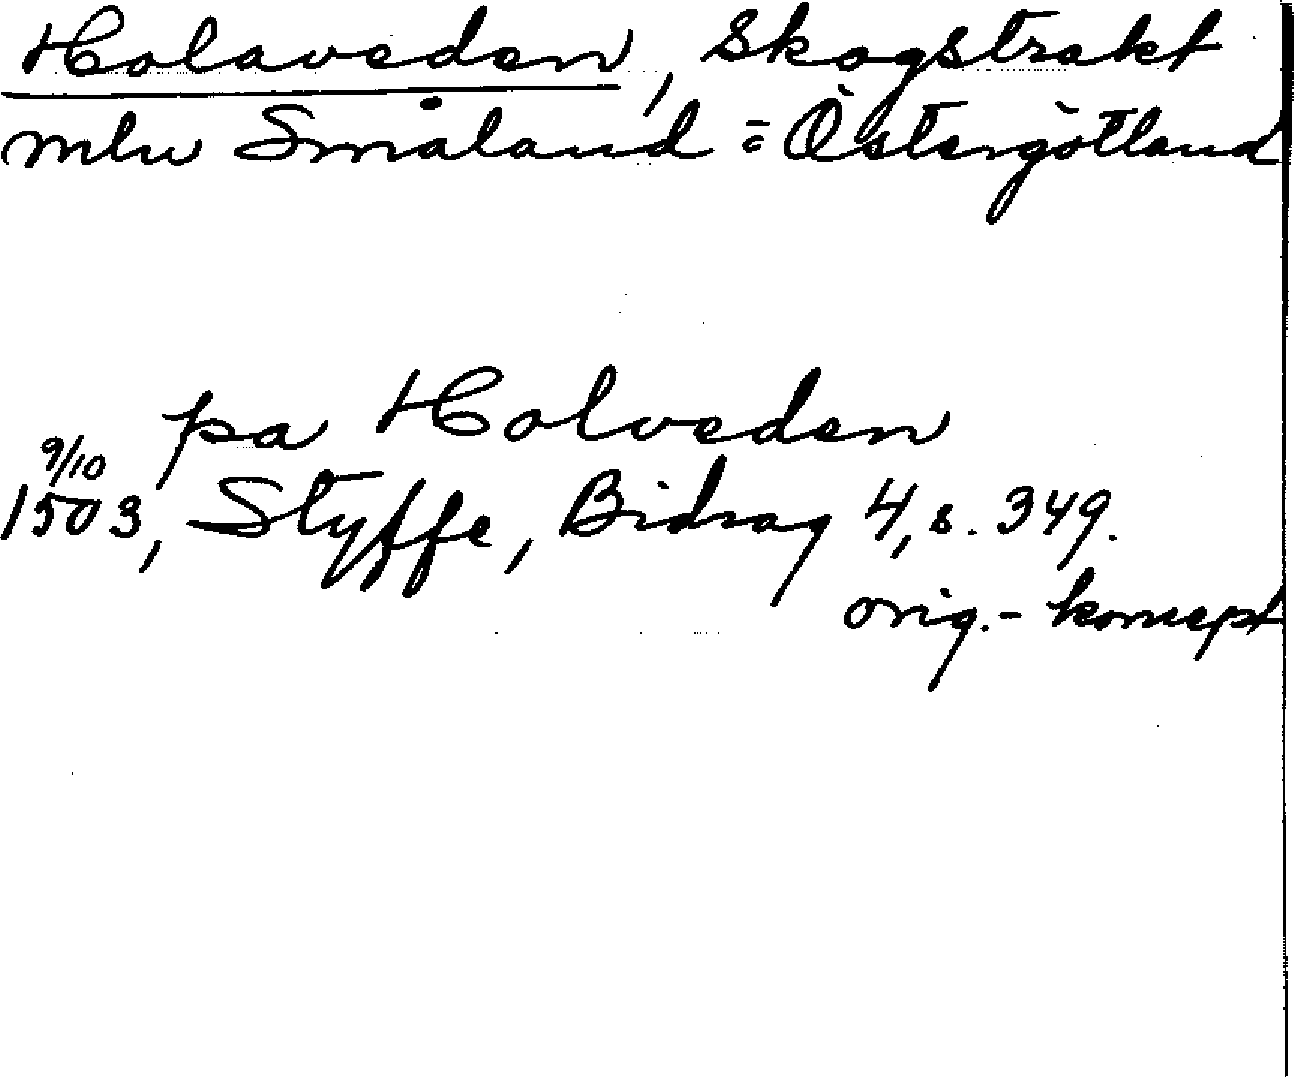 Holaveden, Skogstrakt
mlw Småland = Östergötland
pa Holveden
9/10
1503, Styffe, Bidrag 4, s. 349.
orig.- koncept